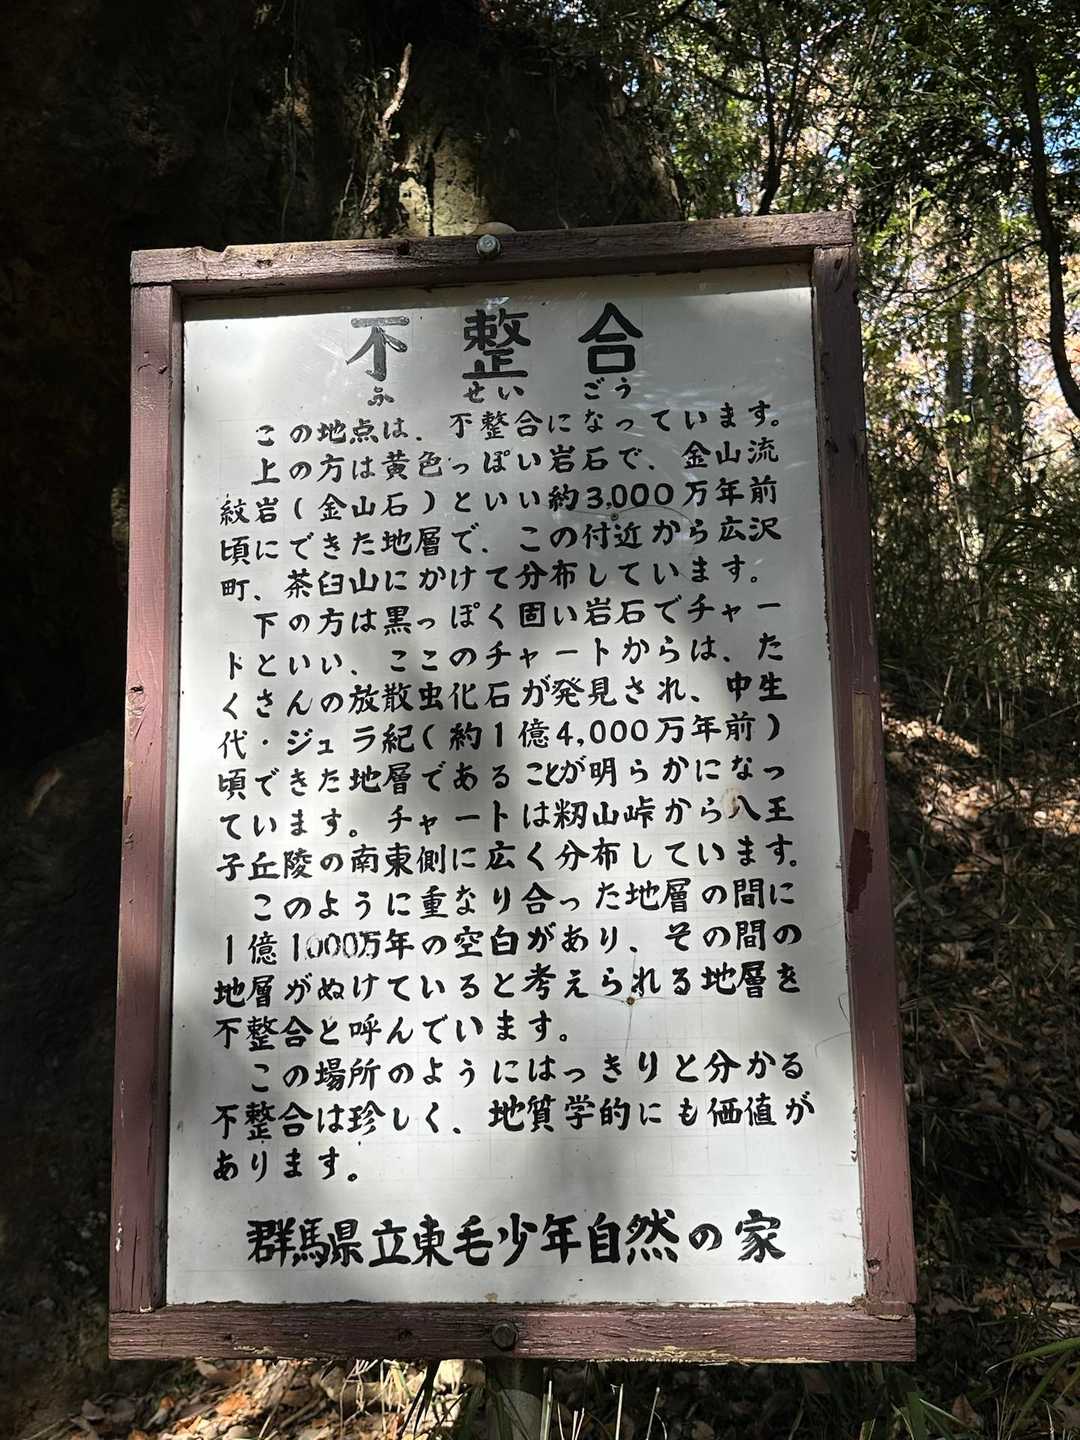 不整合
ふ せい ごう
この地点は、不整合になっています。
上の方は黄色っぽい岩石で、金山流
紋岩(金山石)といい約3,000万年前
頃にできた地層で、この付近から広沢
町、茶臼山にかけて分布しています。
下の方は黒っぽく固い岩石でチャー
トといい、ここのチャートからは、た
くさんの放散虫化石が発見され、中生
代・ジュラ紀(約1億4,000万年前)
頃できた地層であることが明らかになっ
ています。チャートは籾山峠から八王
子丘陵の南東側に広く分布しています。
このように重なり合った地層の間に
1億1000万年の空白があり、その間の
地層がぬけていると考えられる地層を
不整合と呼んでいます。
この場所のようにはっきりと分かる
不整合は珍しく、地質学的にも価値が
あります。
群馬県立東毛少年自然の家